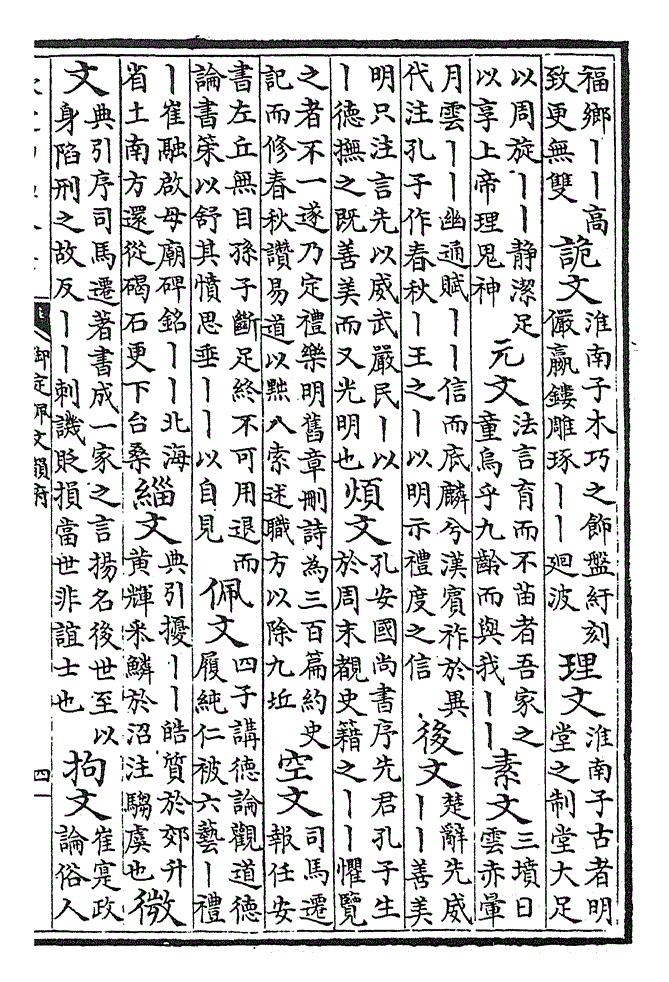 福鄉丨丨高致更無雙 詭文 淮南子木巧之飾盤紆刻儼嬴鏤雕琢丨丨廻波 理文 淮南子古者明堂之制堂大足
以周旋丨丨静潔足以享上帝理鬼神 元文 法言育而不苗者吾家之童烏乎九齡而與我丨丨 素文 三墳日雲赤暈
月雲丨丨幽通賦丨丨信而底麟兮漢賓祚於異代注孔子作春秋丨王之丨以明示禮度之信 後文 楚辭先威丨丨善美
明只注言先以威武嚴民丨以丨德撫之既善美而又光明也 煩文 孔安國尚書序先君孔子生於周末覩史籍之丨丨懼覽
之者不一遂乃定禮樂明舊章刪詩為三百篇約史記而修春秋讚易道以黜八索述職方以除九坵 空文 司馬遷報任安
書左丘無目孫子斷足終不可用退而論書策以舒其憤思垂丨丨以自見 佩文 四子講德論觀道德履純仁被六藝丨禮
丨崔融啟母廟碑銘丨丨北海省土南方還從碣石更下台桑 緇文 典引擾丨丨皓質於郊升黃輝采鱗於沼注騶虞也 微
文 典引序司馬遷著書成一家之言揚名後世至以身陷刑之故反丨丨刺譏貶損當世非誼士也 拘文 崔寔政論俗人
御定佩文韻府
四